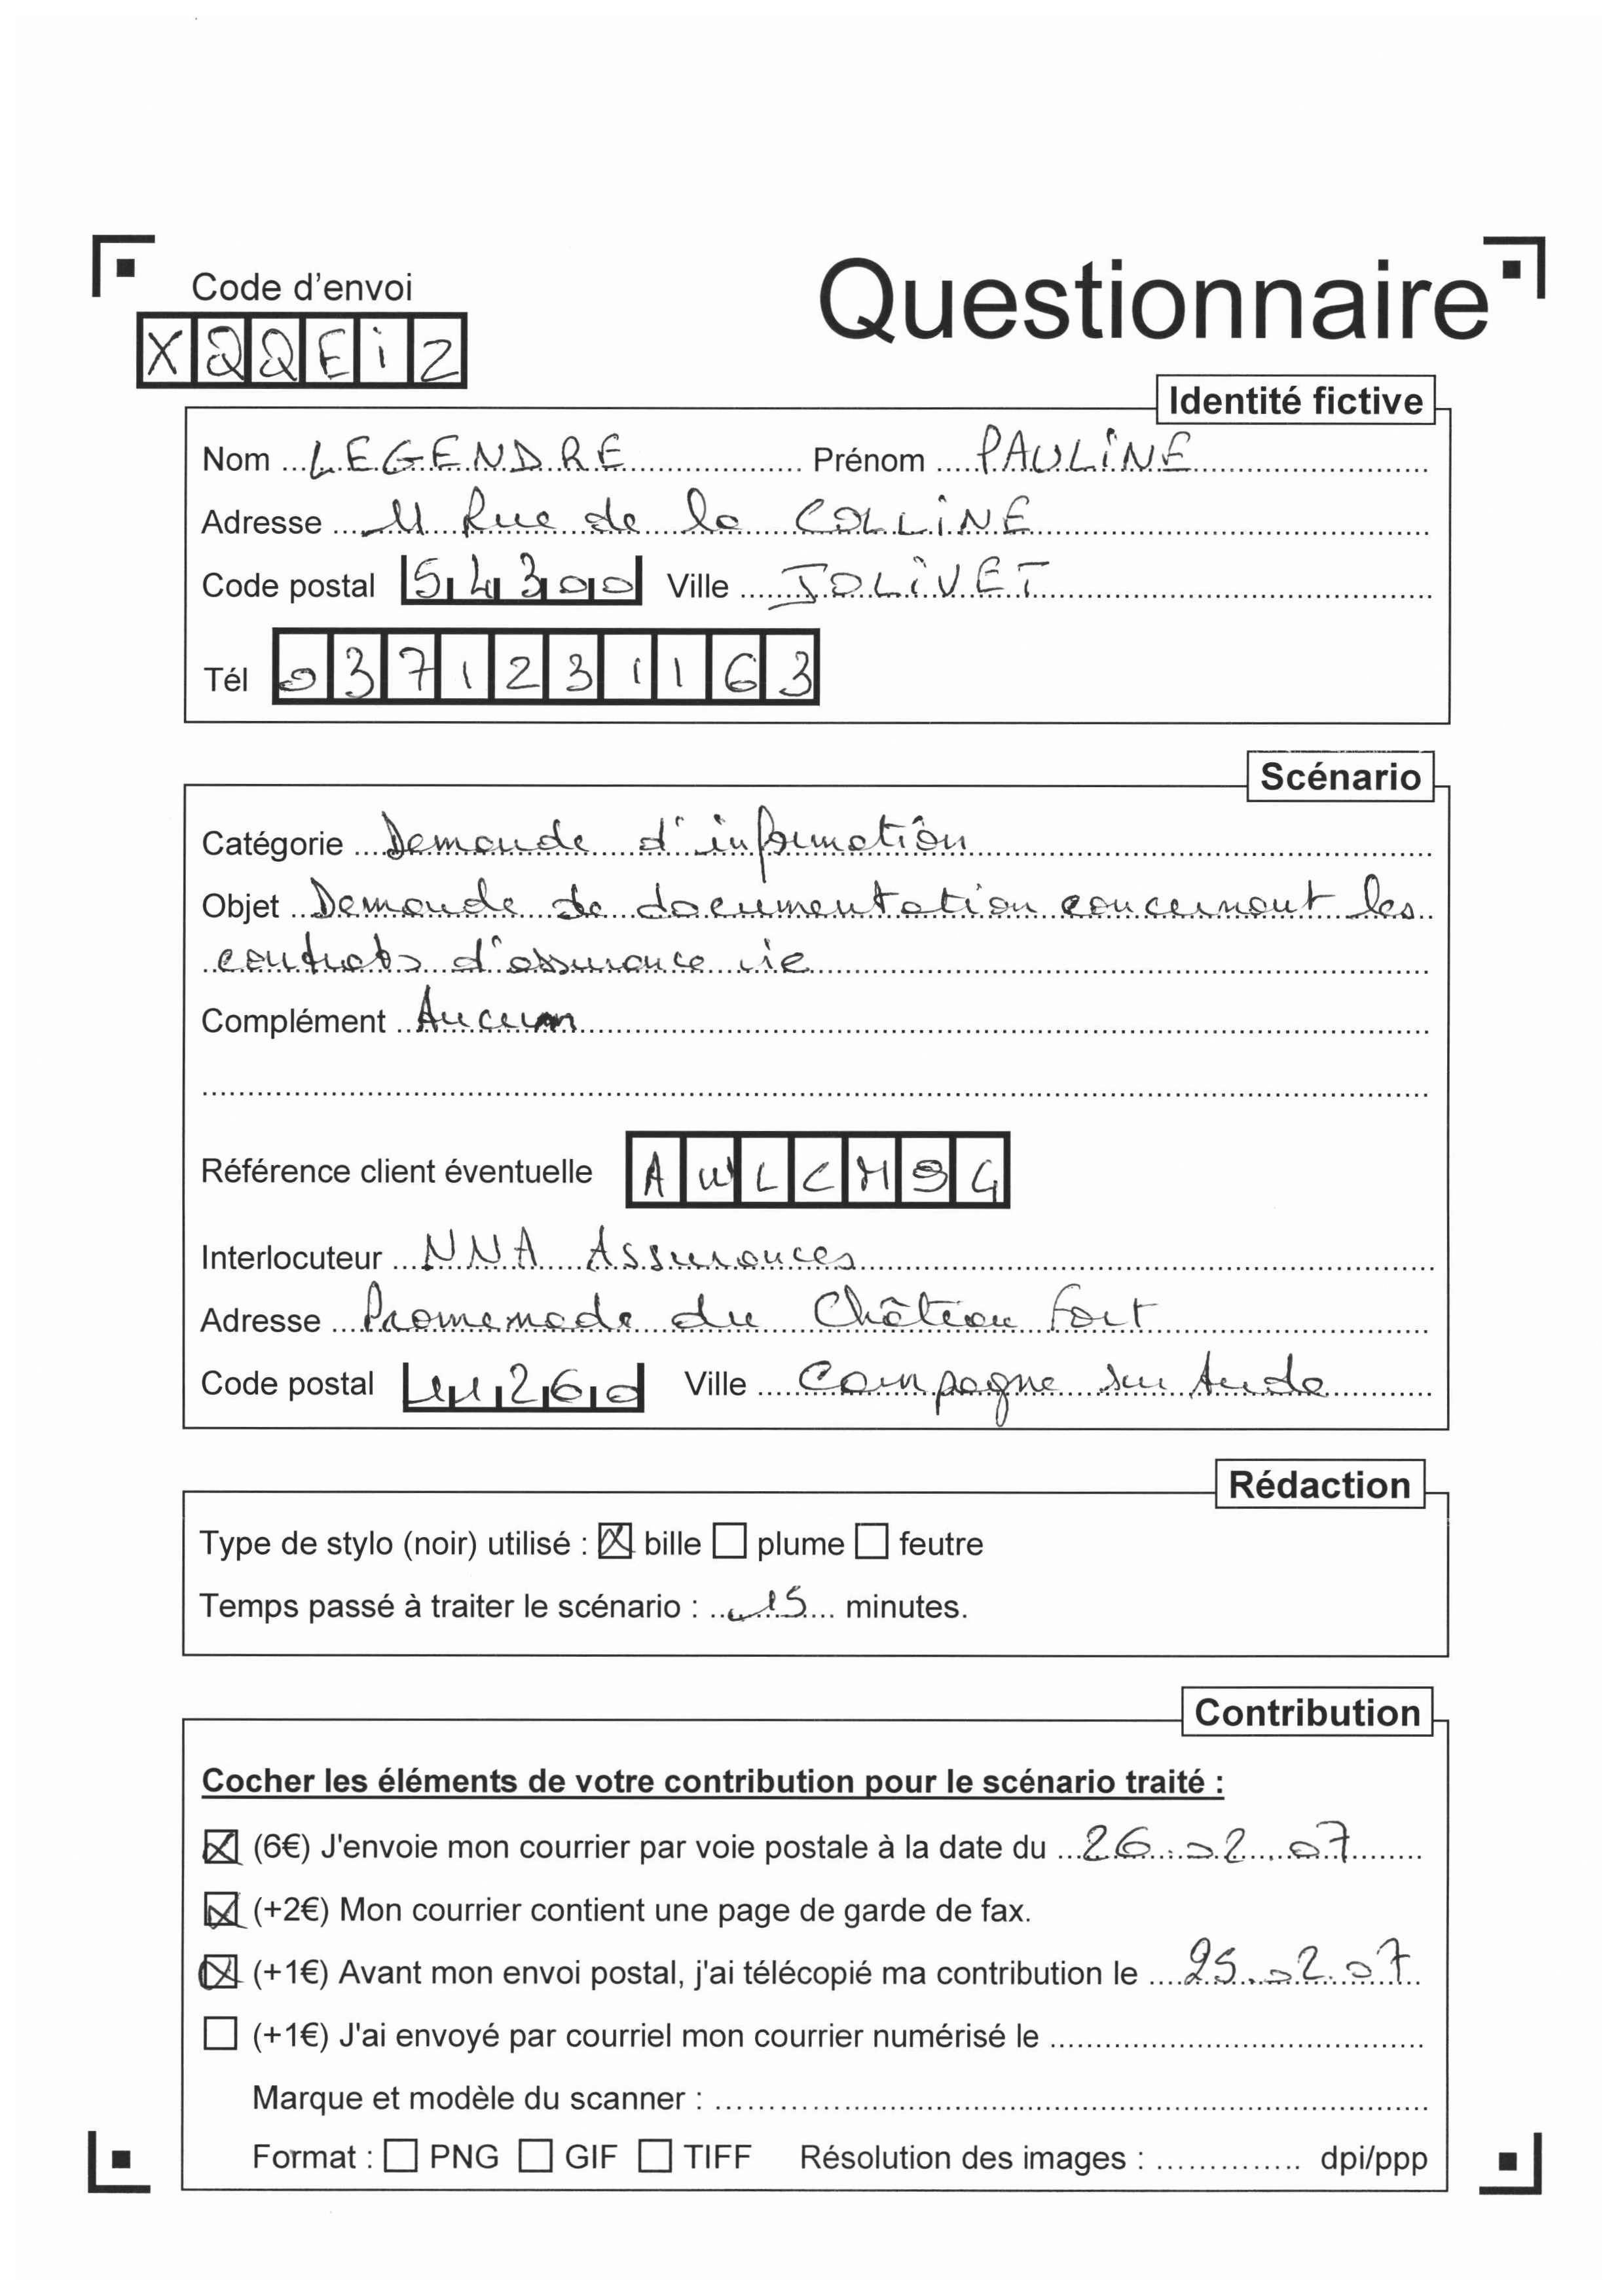 Code d'envoi
Questionnaire
XQQEiZ
Identité fictive
Nom LEGENDRE Prénom PAULiNE
Adresse 11 Rue de la COLLiNE
Code postal 54300 Ville JOLiVET
Tél 0371231163
Scénario
Catégorie Demande d'information
Objet Demande de documentation concernant les
contrats d'assurance vie
Complément Aucun
Référence client éventuelle AWLCMSG
Interlocuteur NNA Assurances
Adresse Promenade du Château Fort
Code postal 11260 Ville Campagne sur Aude
Rédaction
Type de stylo (noir) utilisé : ☒ bille ☐ plume ☐ feutre
Temps passé à traiter le scénario : 15 minutes.
Contribution
Cocher les éléments de votre contribution pour le scénario traité :
☒ (6€) J'envoie mon courrier par voie postale à la date du 26.02.07
☒ (+2€) Mon courrier contient une page de garde de fax.
☒ (+1€) Avant mon envoi postal, j'ai télécopié ma contribution le 25.02.07
☐ (+1€) J'ai envoyé par courriel mon courrier numérisé le
Marque et modèle du scanner :
Format : ☐ PNG ☐ GIF ☐ TIFF Résolution des images : dpi/ppp